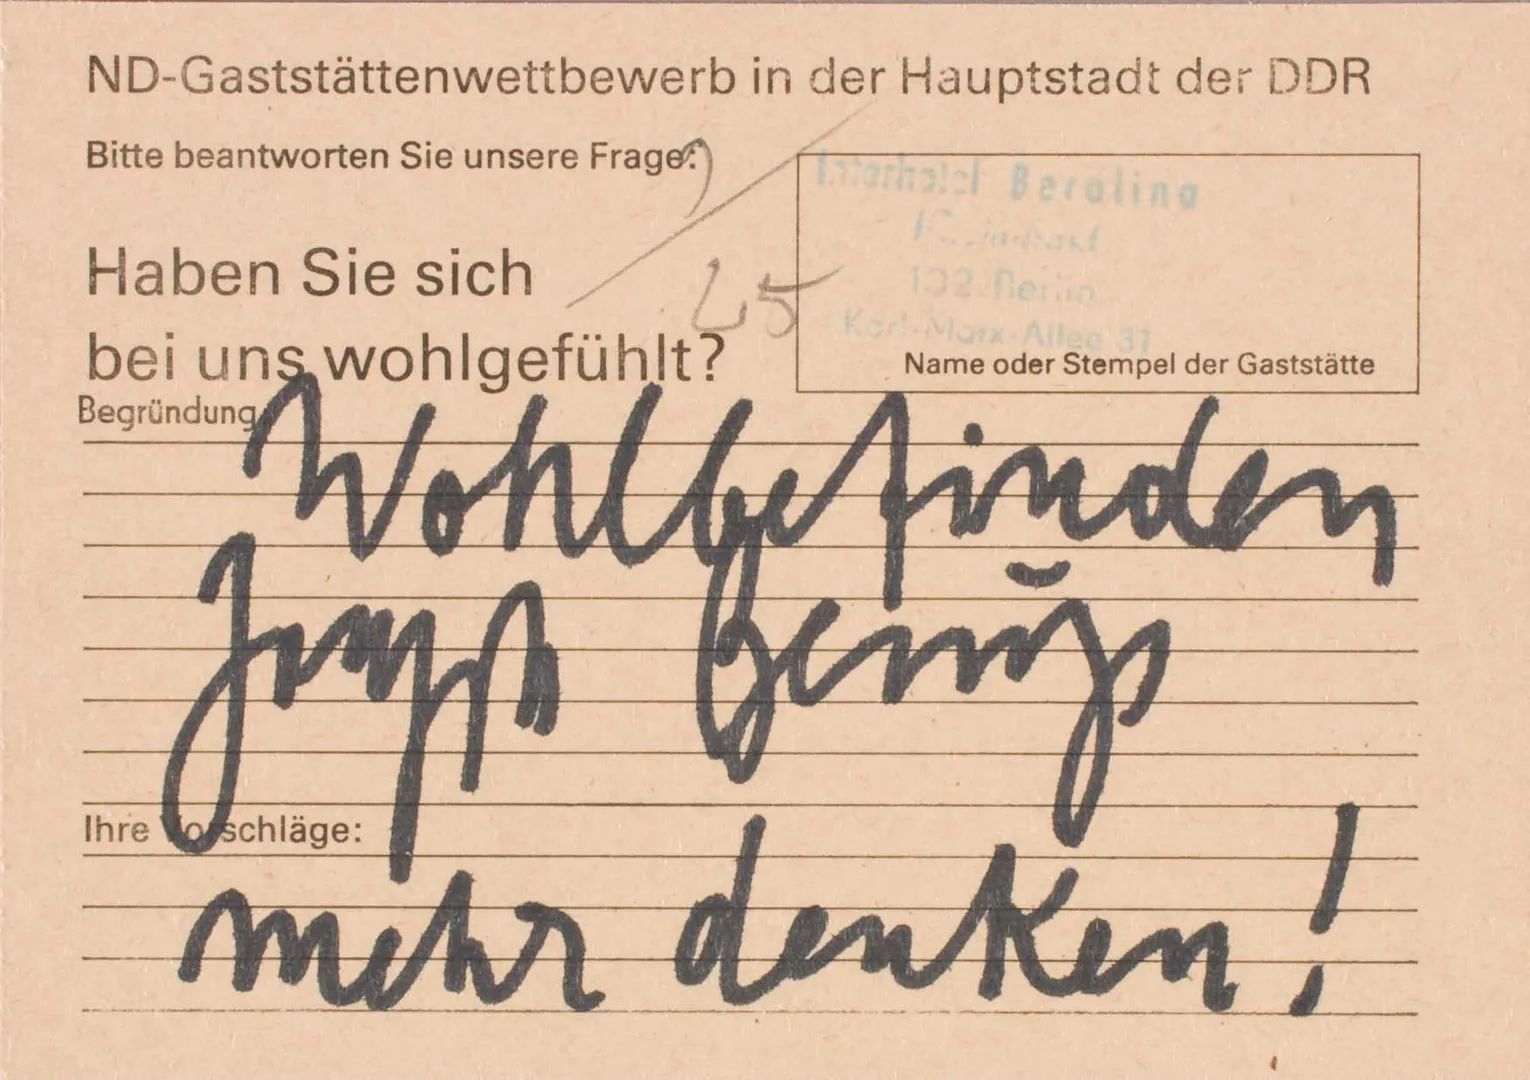 ND-Gaststättenwettbewerb in der Hauptstadt der DDR
Bitte beantworten Sie unsere Frage:
Interhotel Berolina
102 Berlin
Karl-Marx-Allee 31
Name oder Stempel der Gaststätte
25
Haben Sie sich
bei uns wohlgefühlt?
Begründung
Wohlbefinden
genug
Ihre Vorschläge:
mehr denken!